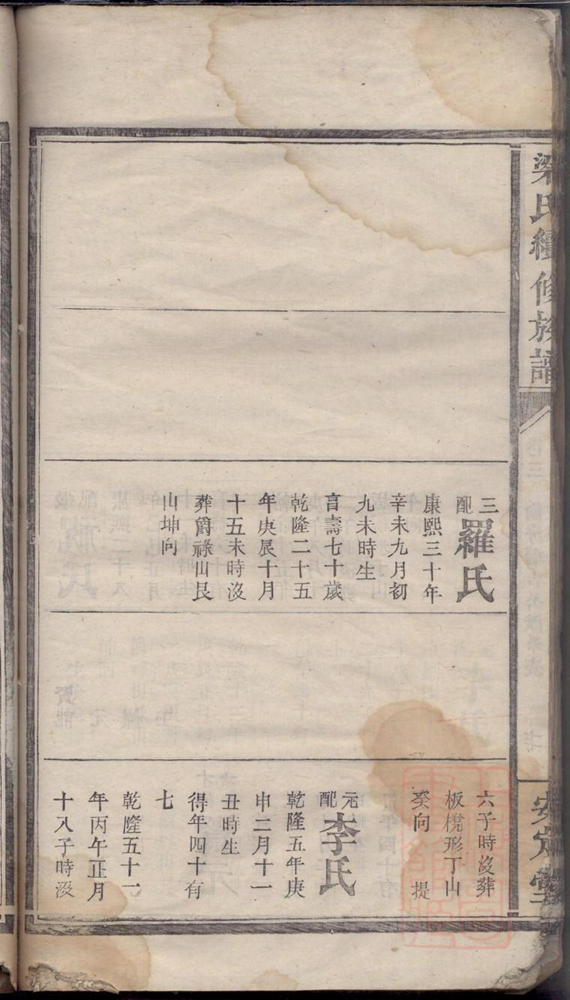 梁氏續修族譜
安定堂
三配羅氏
康熙三十年
辛未九月初
九未時生
享壽七十歲
乾隆二十五
年庚展十月
十五未時沒
葬爵祿山艮
山坤向
六子時沒葬
板櫈形丁山
癸向 提
元配李氏
乾隆五年庚
申二月十一
丑時生
得年四十有
七
乾隆五十一
年丙午正月
十八子時沒